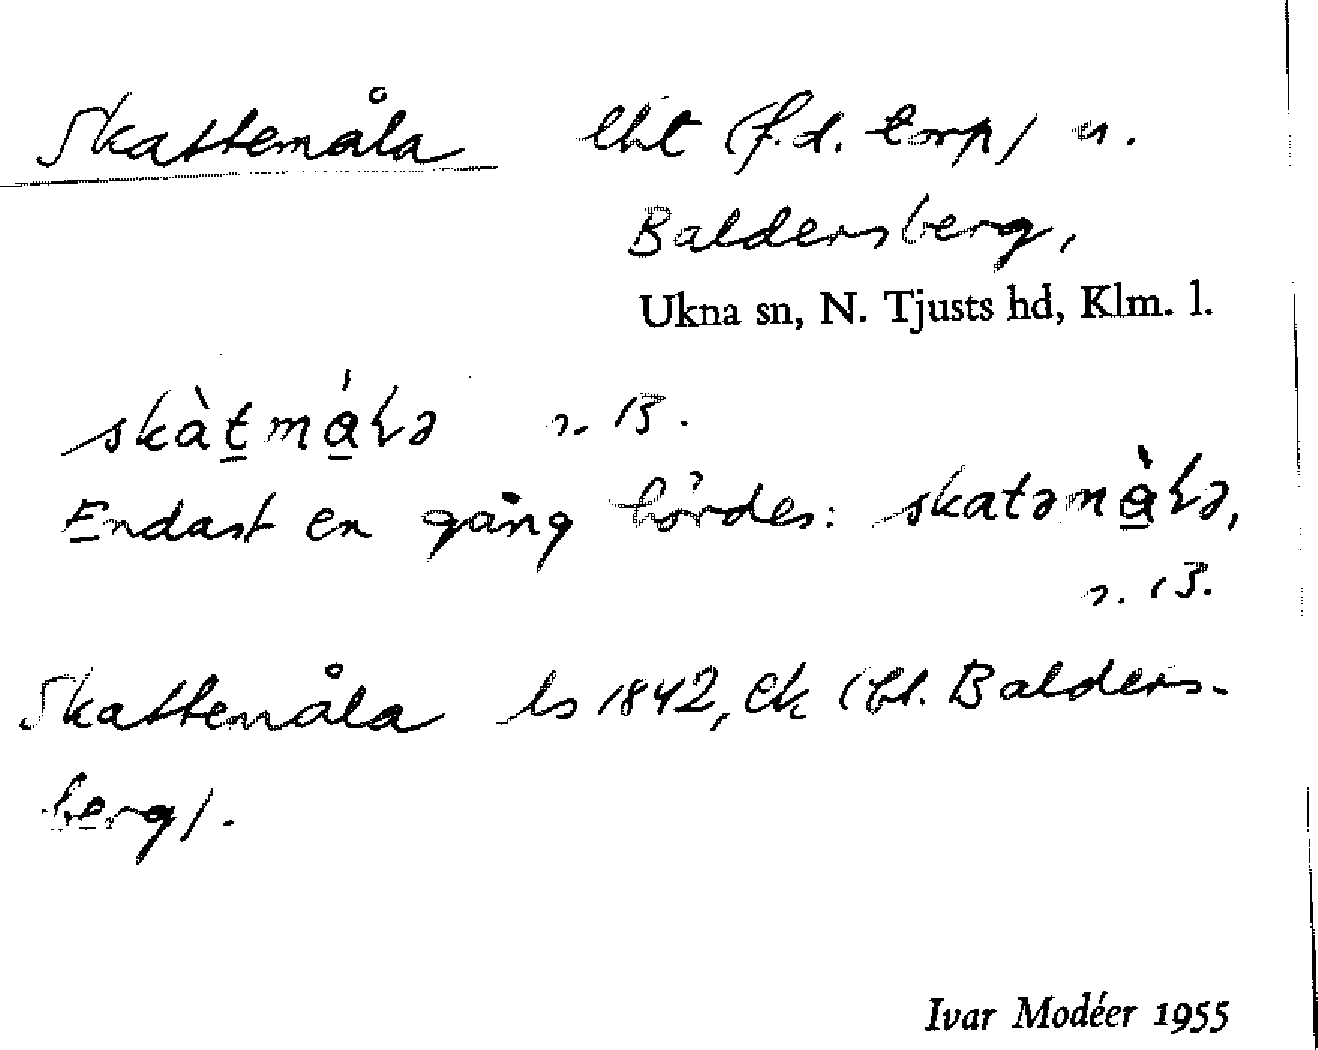 Skattemåla lht (f.d. torp) u.
Baldersberg,
Ukna sn, N. Tjusts hd, Klm. l.
skàt̲má̲ɭə r. 13.
Endast en gång hördes: skatəmà̲ɭə,
r. 13.
Skattemåla ls 1842, Ek (bl. Balders-
berg).
Ivar Modéer 1955